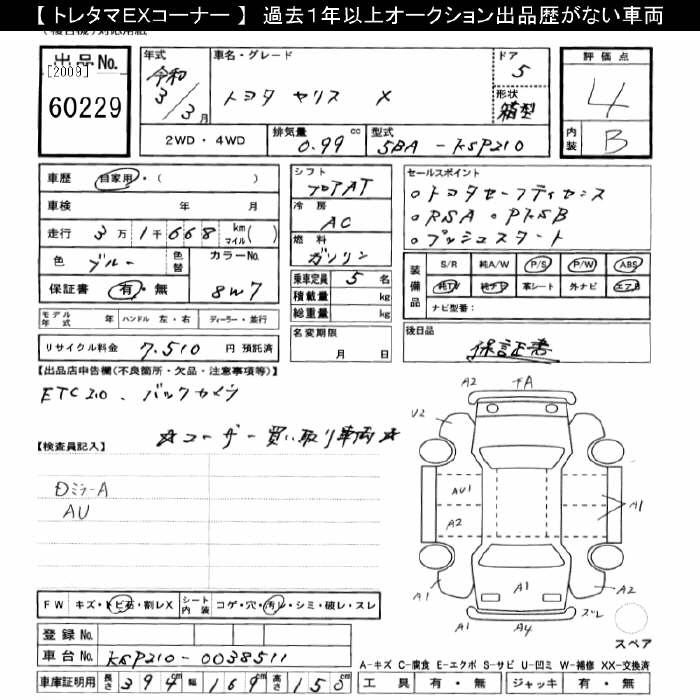 【 トレタマEXコーナー 】 過去1年以上オークション出品歴がない車両
出品No.
[2009]
60229
年式
令和
3/3月
車名・グレード
トヨタ ヤリス X
ドア
5
形状
箱型
評価点
4
内装
B
2WD・4WD
排気量 0.99 cc
型式 5BA - KSP210
車歴 自家用・( )
車検 年 月
走行 3万1千668 km マイル( )
色 ブルー 色替
カラーNo. 8W7
保証書 有・無
モデル年式 年 ハンドル 左・右 ディーラー・並行
リサイクル料金 7.510 円 預託済
シフト
フロアAT
冷房
AC
燃料
ガソリン
乗車定員 5 名
積載量 kg
総重量 kg
名変期限
月 日
セールスポイント
○トヨタセーフティセンス
○RSA ○PKSB
○プッシュスタート
装備品
S/R 純A/W P/S P/W ABS
純TV 純ナビ 革シート 外ナビ エアB
ナビ型番:
後日品
保証書
【出品店申告欄(不良箇所・欠品・注意事項等)】
ETC2.0 、バックカメラ
☆ユーザー買い取り車両☆
【検査員記入】
ミラーA
AU
A2
U2
A1
AU1
A2
A1
A1
A1
A2
ズレ
A1
A4
スペア
FW キズ・トビ石・割レX
シート内装 コゲ・穴・汚レ・シミ・破レ・スレ
登録No.
車台No. KSP210-0038511
車庫証明用 長さ 394cm 幅 169cm 高さ 150cm
A-キズ C-腐食 E-エクボ S-サビ U-凹ミ W-補修 XX-交換済
工具 有・無 ジャッキ 有・無